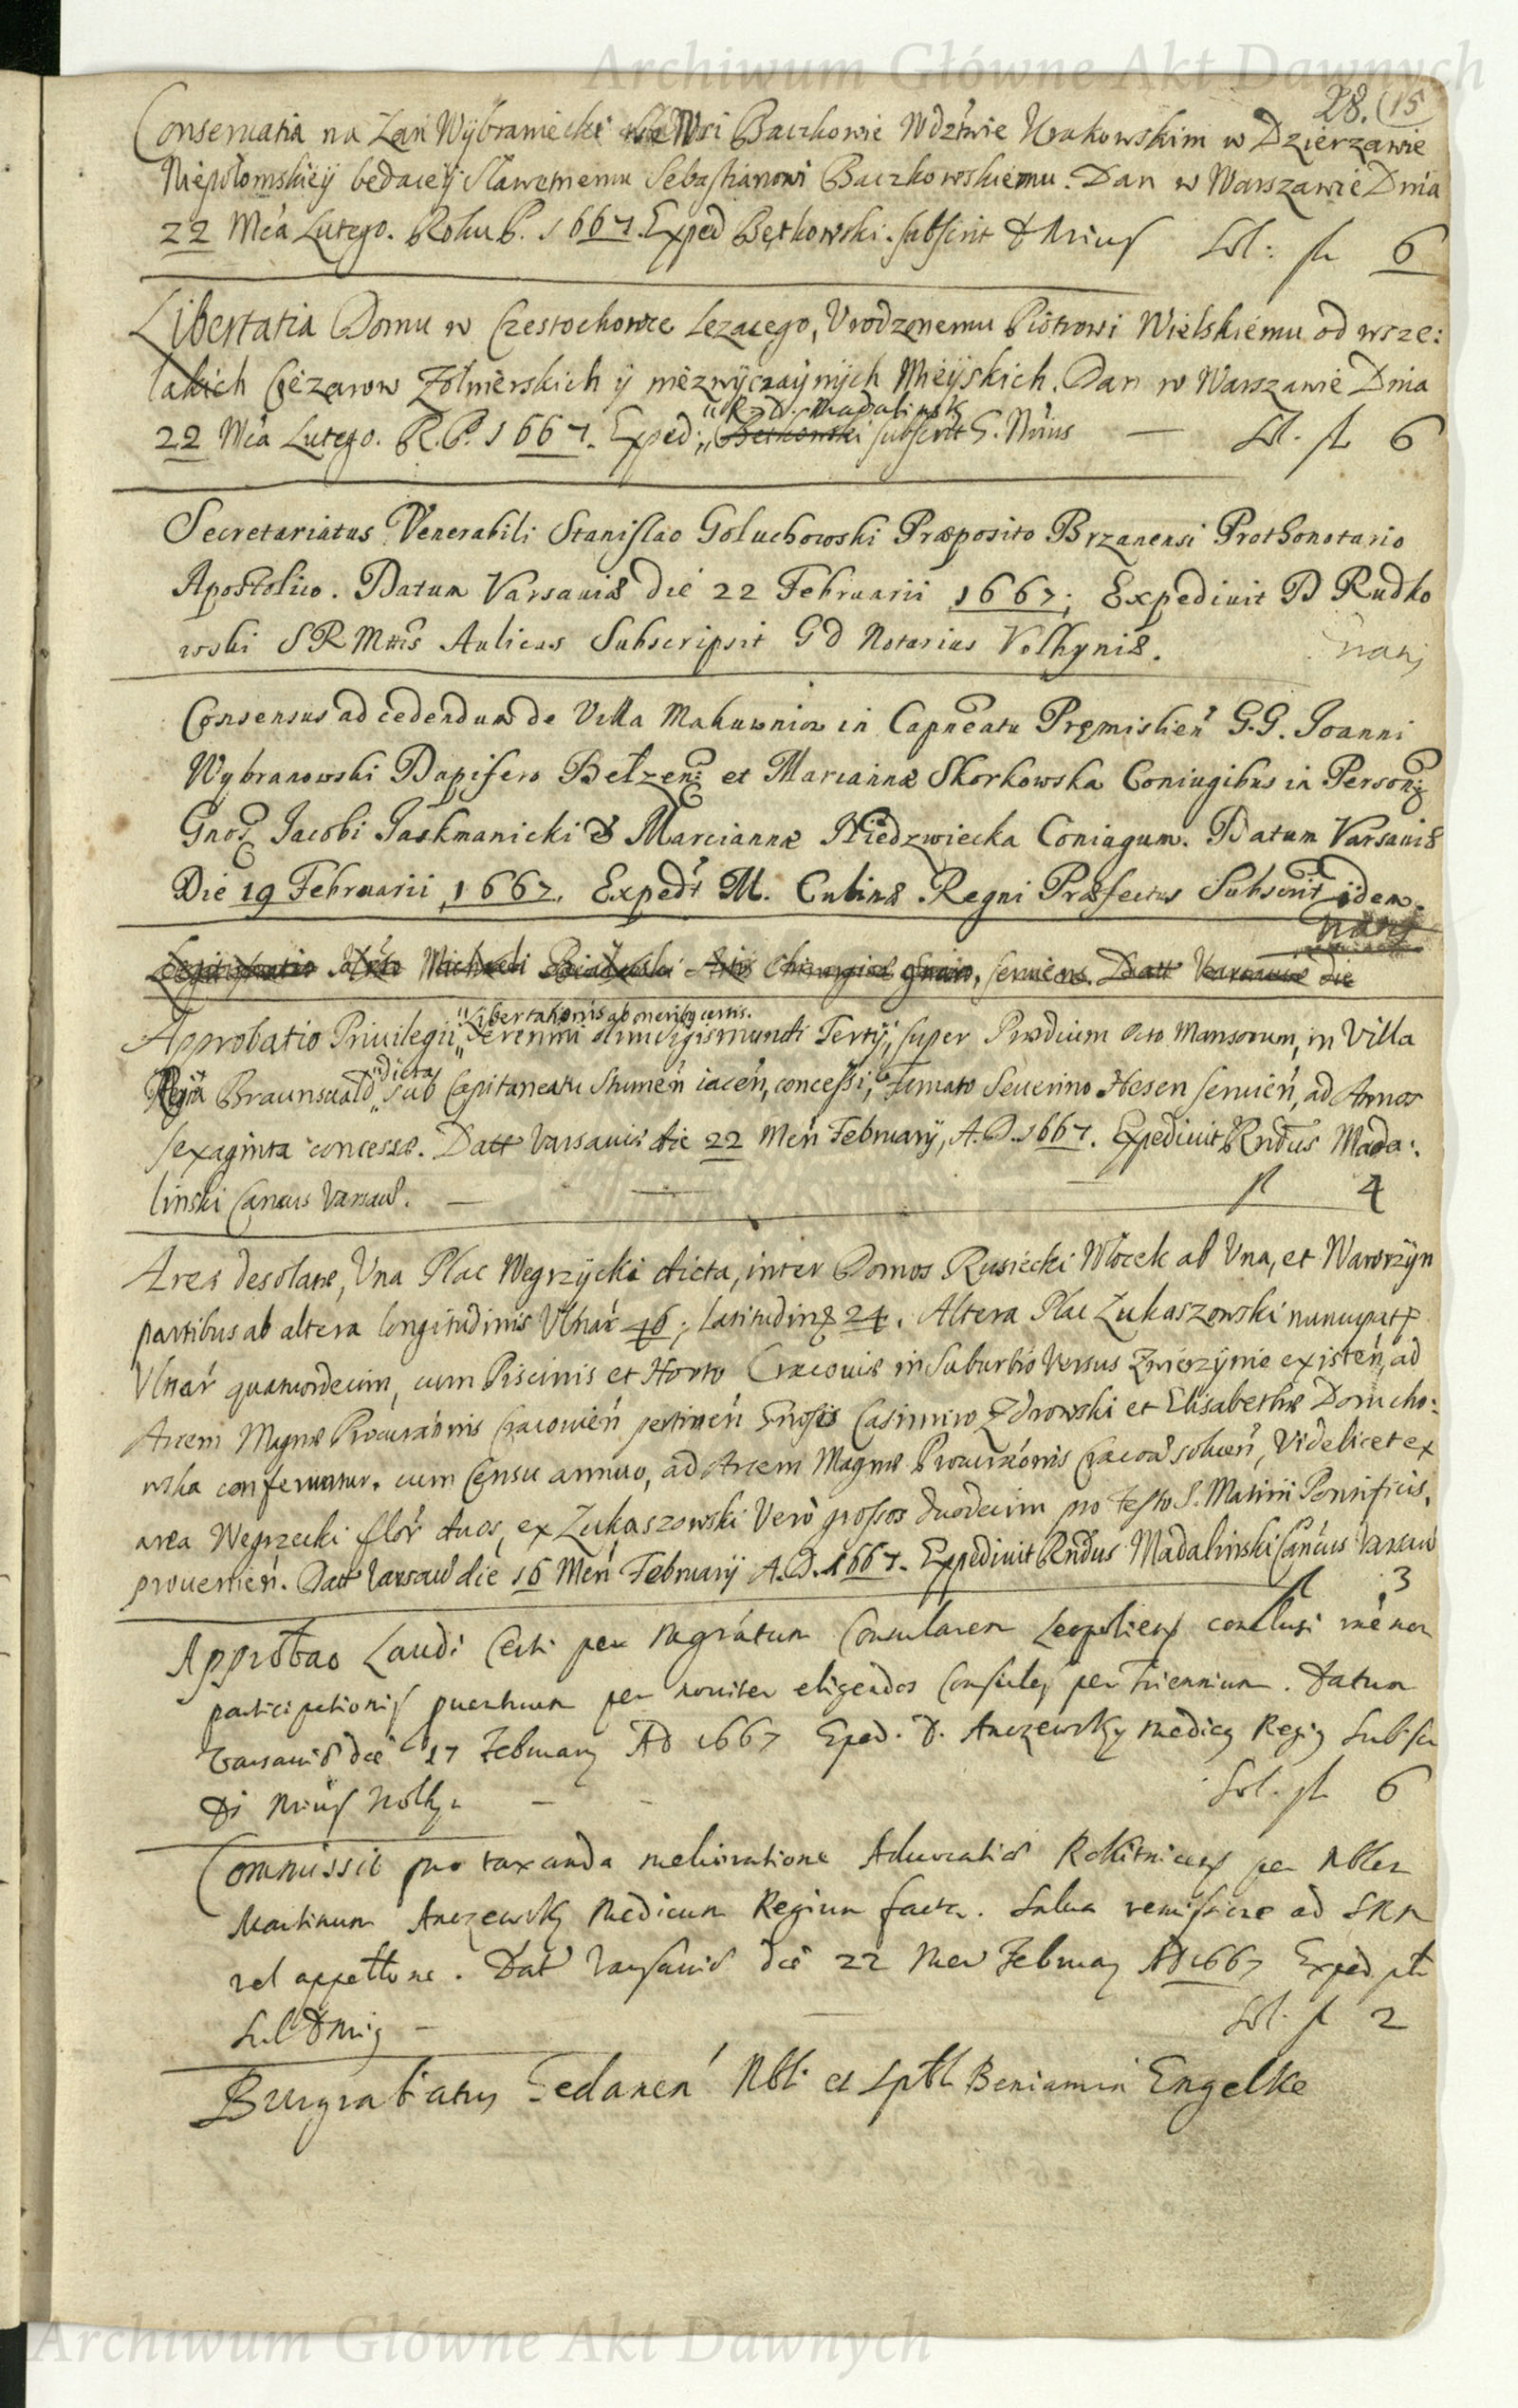 Archiwum Główne Akt Dawnych
28. 15
Conseruatia na Łan Wybraniecki we Wsi Baczkowie Wdztwie Krakowskim w Dzierzawie
Niepołomskiey bedacey Sławetnemu Sebastianowi Baczkowskiemu. Dan w Warszawie Dnia
22 Mca Lutego. Roku P. 1667. Exped Bętkowski. subscrit D Nrius Sol: fl 6
Libertatia Domu w Czestochowce Lezacego, Vrodzonemu Piotrowi Wielskiemu od wsze:
lakich Cięzarow Zołnierskich y niezwyczaynych Mieyskich. Dan w Warszawie Dnia
"R. D. Madalinsk
22 Mca Lutego. R. P. 1667. Exped: Betkowski subscrit G. Nrius — Sol. fl 6
Secretariatus Venerabili Stanislao Goluchowski Præposito Brzanensi Prothonotario
Apostolico. Datum Varsauiæ die 22 Februarii 1667; Expediuit D Rudko
wski SRMttis Aulicus Subscripsit G D Notarius Volhyniæ.
Consensus ad cedendum de Villa Makuwnioz in Capneatu Pręmislień G.G. Joanni
Wybranowski Dapifero Bełzenƺ et Mariannæ Skorkowska Coniugibus in Personƺ
Gnoƺ Jacobi Jaskmanicki & Marciannæ Niedzwiecka Coniugum. Datum Varsauiæ
Die 19 Februarii 1667. Exped't M. Culinæ Regni Præfectus Subscrit idem.
Legitimatio Michaeli Artis Chirurgicæ seruiens. Datt Varsauiæ die
"Libertationis ab oneribq certis.
Approbatio Priuilegii Serenmi olim Zigismundi Tertij, super Prædium octo Mansorum, in Villa
"dicta
Rgia Braunswald sub Capitaneatu Stumeń iaceń, concessi, Fumato Seuerino Hesen seruień, ad Annos
sexaginta concessæ. Datt Varsauiæ die 22 Meń February, A.D. 1667. Expediuit Rndus Mada:
linski Cancus Varsauæ. — — — fl 4
Area desolatæ, Vna Plac Wegrzycki dicta, inter Domos Rusiecki Włocek ab Vna, et Wawrzyn
partibus ab altera longitudinis Vlnar 46; latitudinƺ 24. Altera Plac Zukaszowski nuncupatƺ
Vlnar quatuordecim, cum Piscinis et Horto Cracouiæ in Suburbio Versus Zwierzynie existeń, ad
Arcem Magnæ Procuraonis Cracouień pertineń Gnosis Casimiro Zdrowski et Elisabethæ Domcho:
wska conferuntur. cum Censu annuo, ad Arcem Magnæ Procuraonis Cracou solueń, Videlicet ex
area Wegrzecki flor duos, ex Zukaszowski Verò grossos duodecim pro festo S. Martini Pontificis,
prouenień. Datt Varsau die 16 Meń February A.D. 1667. Expediuit Rndus Madalinski Cancus Varsau
fl 3
Approbao Laudi Certi per Magratum Consularem Leopoliens conclusi
participationis per nouiter eligendos Consules per Triennium. Datum
Varsauiæ die 17 February AD 1667 Exped. D. Anczewsky Medicq Regiq Subscr
Di Nrius Volhy. — — Sol. fl 6
Commissio pro taxanda melioratione Aduocatiæ Rokitnicens per Nblem
Martinum Anczewsky Medicum Regium facta. Salua remissione ad SRM
vel appellone. Dat Varsauiæ die 22 Men February AD 1667 Exped
Sub D Nriq — Sol. fl 2
Burgrabiatus Gedaneń Nbli et Spbli Beniamin Engelke
Archiwum Główne Akt Dawnych